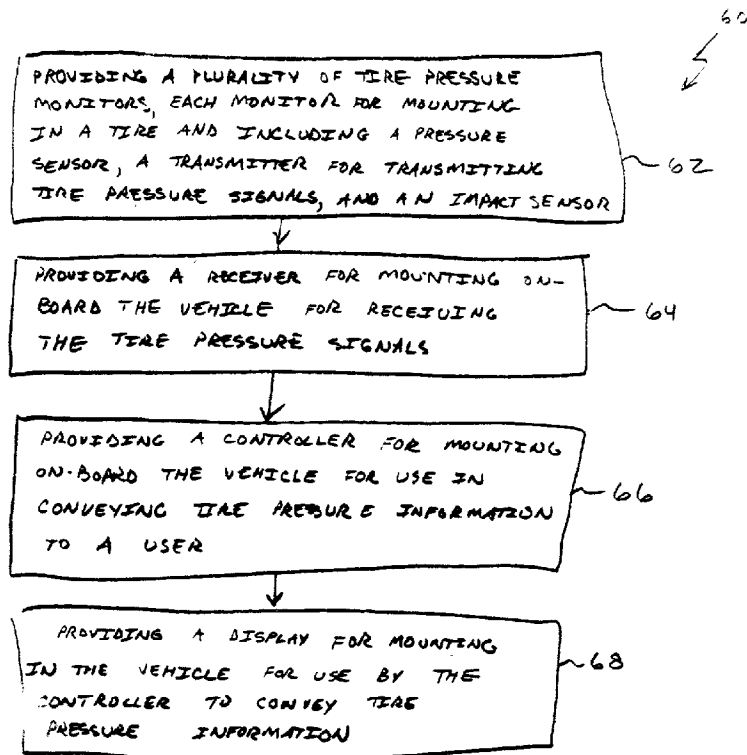 60
PROVIDING A PLURALITY OF TIRE PRESSURE
MONITORS, EACH MONITOR FOR MOUNTING
IN A TIRE AND INCLUDING A PRESSURE
SENSOR, A TRANSMITTER FOR TRANSMITTING
TIRE PRESSURE SIGNALS, AND AN IMPACT SENSOR
62
PROVIDING A RECEIVER FOR MOUNTING ON-
BOARD THE VEHICLE FOR RECEIVING
THE TIRE PRESSURE SIGNALS
64
PROVIDING A CONTROLLER FOR MOUNTING
ON-BOARD THE VEHICLE FOR USE IN
CONVEYING TIRE PRESSURE INFORMATION
TO A USER
66
PROVIDING A DISPLAY FOR MOUNTING
IN THE VEHICLE FOR USE BY THE
CONTROLLER TO CONVEY TIRE
PRESSURE INFORMATION
68